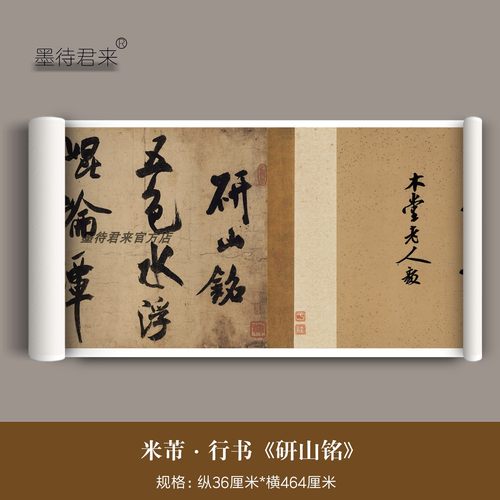 墨待君来®
木堂老人毅
研山銘
五色水浮
崐崘
墨待君来官方店
米芾·行书《研山铭》
规格：纵36厘米*横464厘米